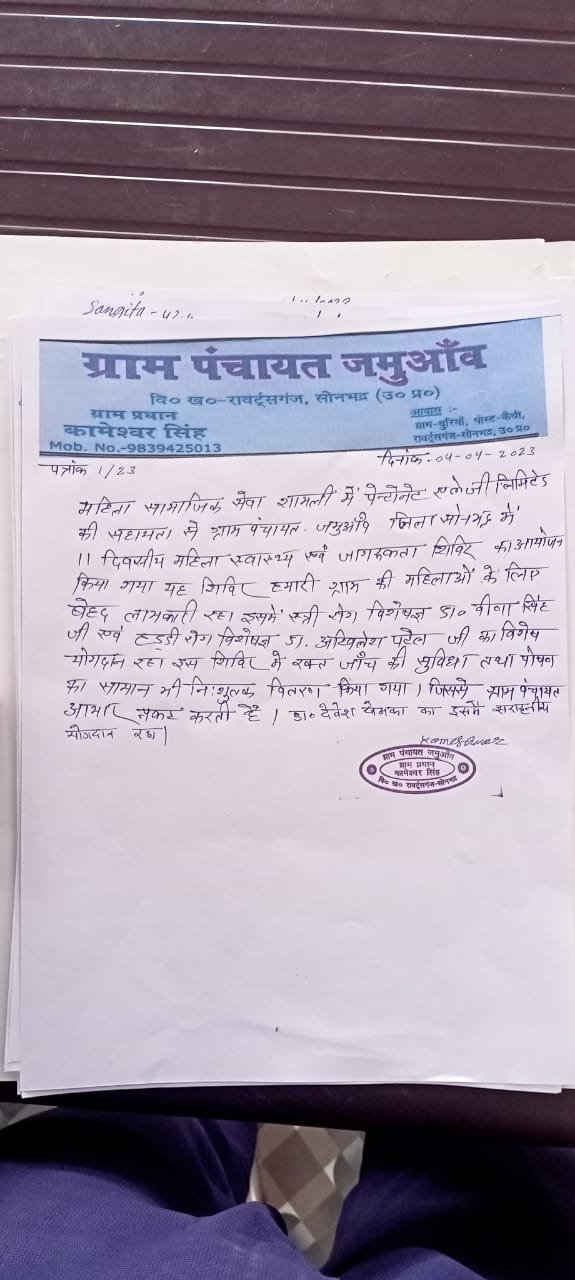 Sangita
ग्राम पंचायत जमुआँव
वि० ख०-रावर्ट्सगंज, सोनभद्र (उ० प्र०)
ग्राम प्रधान
कामेश्वर सिंह
Mob. No.-9839425013
आवास :-
ग्राम-धुरियाँ, पोस्ट-कैथी,
रावर्ट्सगंज-सोनभद्र, उ० प्र०
पत्रांक 1/23
दिनांक-04-04-2023
महिला सामाजिक सेवा शामली में पेन्टोनेट लिमिटेड
की सहायता से ग्राम पंचायत. जमुआँव जिला सोनभद्र में
11 दिवसीय महिला स्वास्थ्य एवं जागरूकता शिविर का आयोजन
किया गया यह शिविर हमारी ग्राम की महिलाओं के लिए
बेहद लाभकारी रहा। इसमें स्त्री रोग विशेषज्ञ डा० वीना सिंह
जी एवं हड्डी रोग विशेषज्ञ डा. अखिलेश पटेल जी का विशेष
योगदान रहा इस शिविर में रक्त जाँच की सुविधा तथा पोषण
का सामान भी नि:शुल्क वितरण किया गया। जिससे ग्राम पंचायत
आभार प्रकट करती है। डा० देवेश खेमका का इसमें सराहनीय
योगदान रहा।
Kameshwar
ग्राम पंचायत जमुआँव
ग्राम प्रधान
कामेश्वर सिंह
वि० ख० रावर्ट्सगंज-सोनभद्र